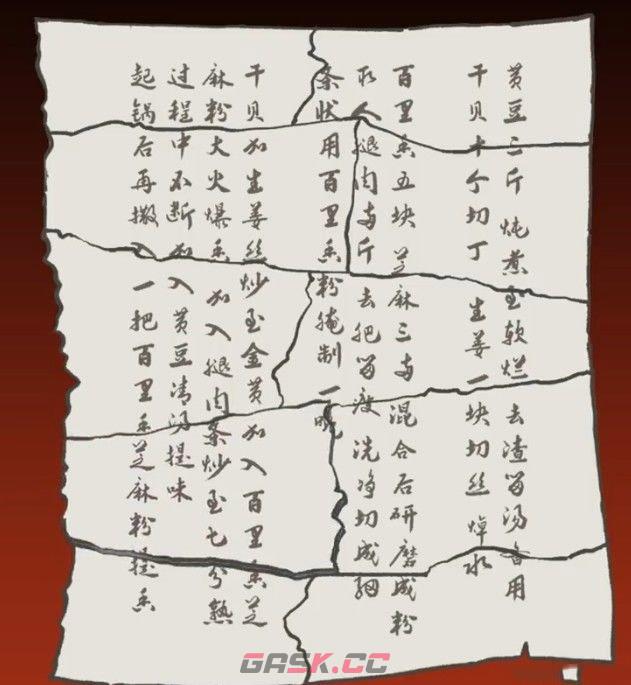 黄豆三斤 炖煮至软烂 去渣留汤备用
干贝十个切丁 生姜一块切丝焯水
百里香五块 芝麻三两 混合后研磨成粉
取人腿肉两斤 去肥留瘦 洗净切成细
条状用百里香粉腌制一晚
干贝加生姜丝炒至金黄加入百里香芝
麻粉大火爆香 加入腿肉条炒至七分熟
过程中不断加入黄豆清汤提味
起锅后再撒入一把百里香芝麻粉提香
GASK.CC